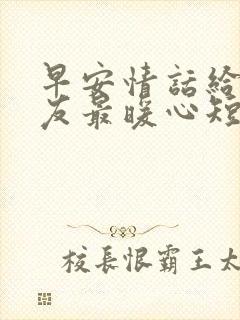 早安情話給
友最暖心短
校長恨霸王太